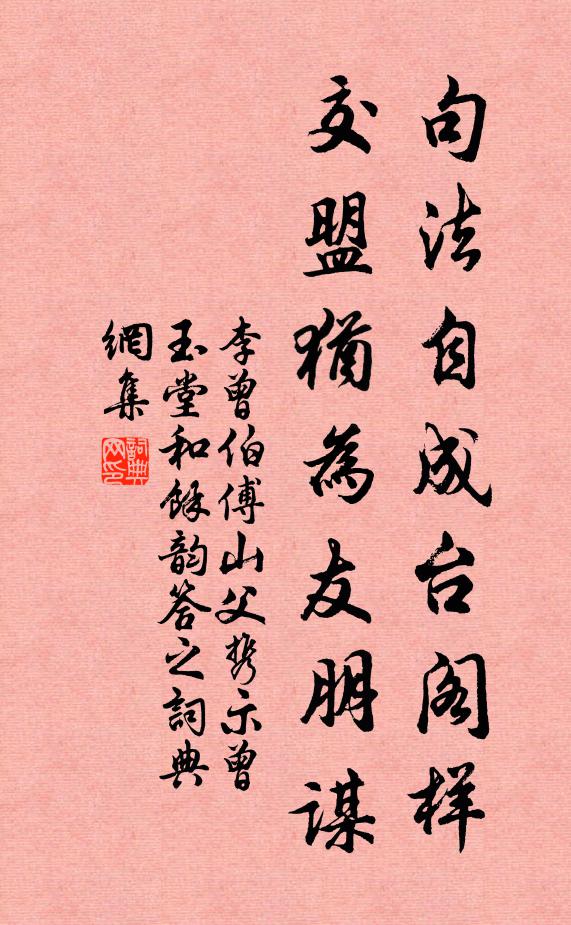 句法自成台阁样
交盟犹為友朋謀
李曾伯傅山父携示曾
玉堂和餘韵答之詞典
網集
詞典网印